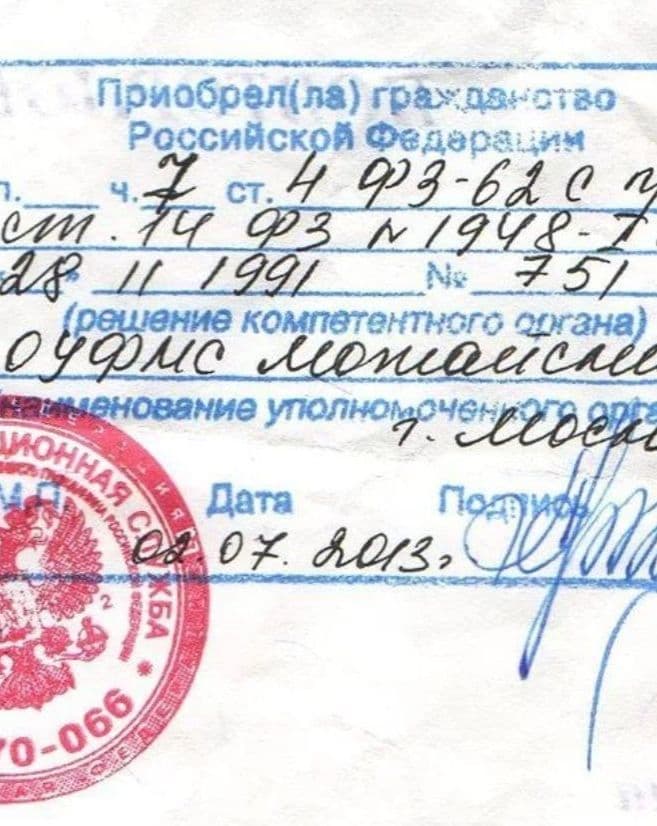 Приобрел(ла) гражданство
Российской Федерации
п. ч. 7 ст. 4 ФЗ-62 с у
ст. 14 ФЗ N 1948-I
28 " 11 1991 № 751
(решение компетентного органа)
ОУФМС Можайски
(наименование уполномоченного орга
г. Моск
М.П. Дата Подпись
02.07.2013г
ЦИОННАЯ СЛУЖБА *
РОССИЙСКОЙ ФЕДЕРАЦИИ
2
70-066